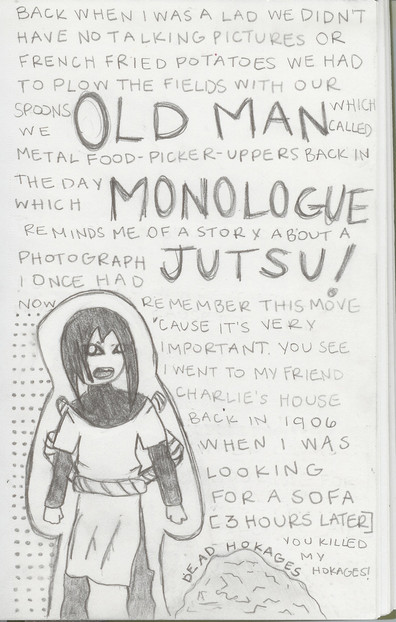 BACK WHEN I WAS A LAD WE DIDN'T
HAVE NO TALKING PICTURES OR
FRENCH FRIED POTATOES WE HAD
TO PLOW THE FIELDS WITH OUR
SPOONS WHICH
WE OLD MAN CALLED
METAL FOOD-PICKER-UPPERS BACK IN
THE DAY
WHICH MONOLOGUE
REMINDS ME OF A STORY ABOUT A
PHOTOGRAPH JUTSU!
I ONCE HAD
NOW REMEMBER THIS MOVE
'CAUSE IT'S VERY
IMPORTANT. YOU SEE
I WENT TO MY FRIEND
CHARLIE'S HOUSE
BACK IN 1906
WHEN I WAS
LOOKING
FOR A SOFA
[3 HOURS LATER]
YOU KILLED
MY
HOKAGES!
DEAD HOKAGES